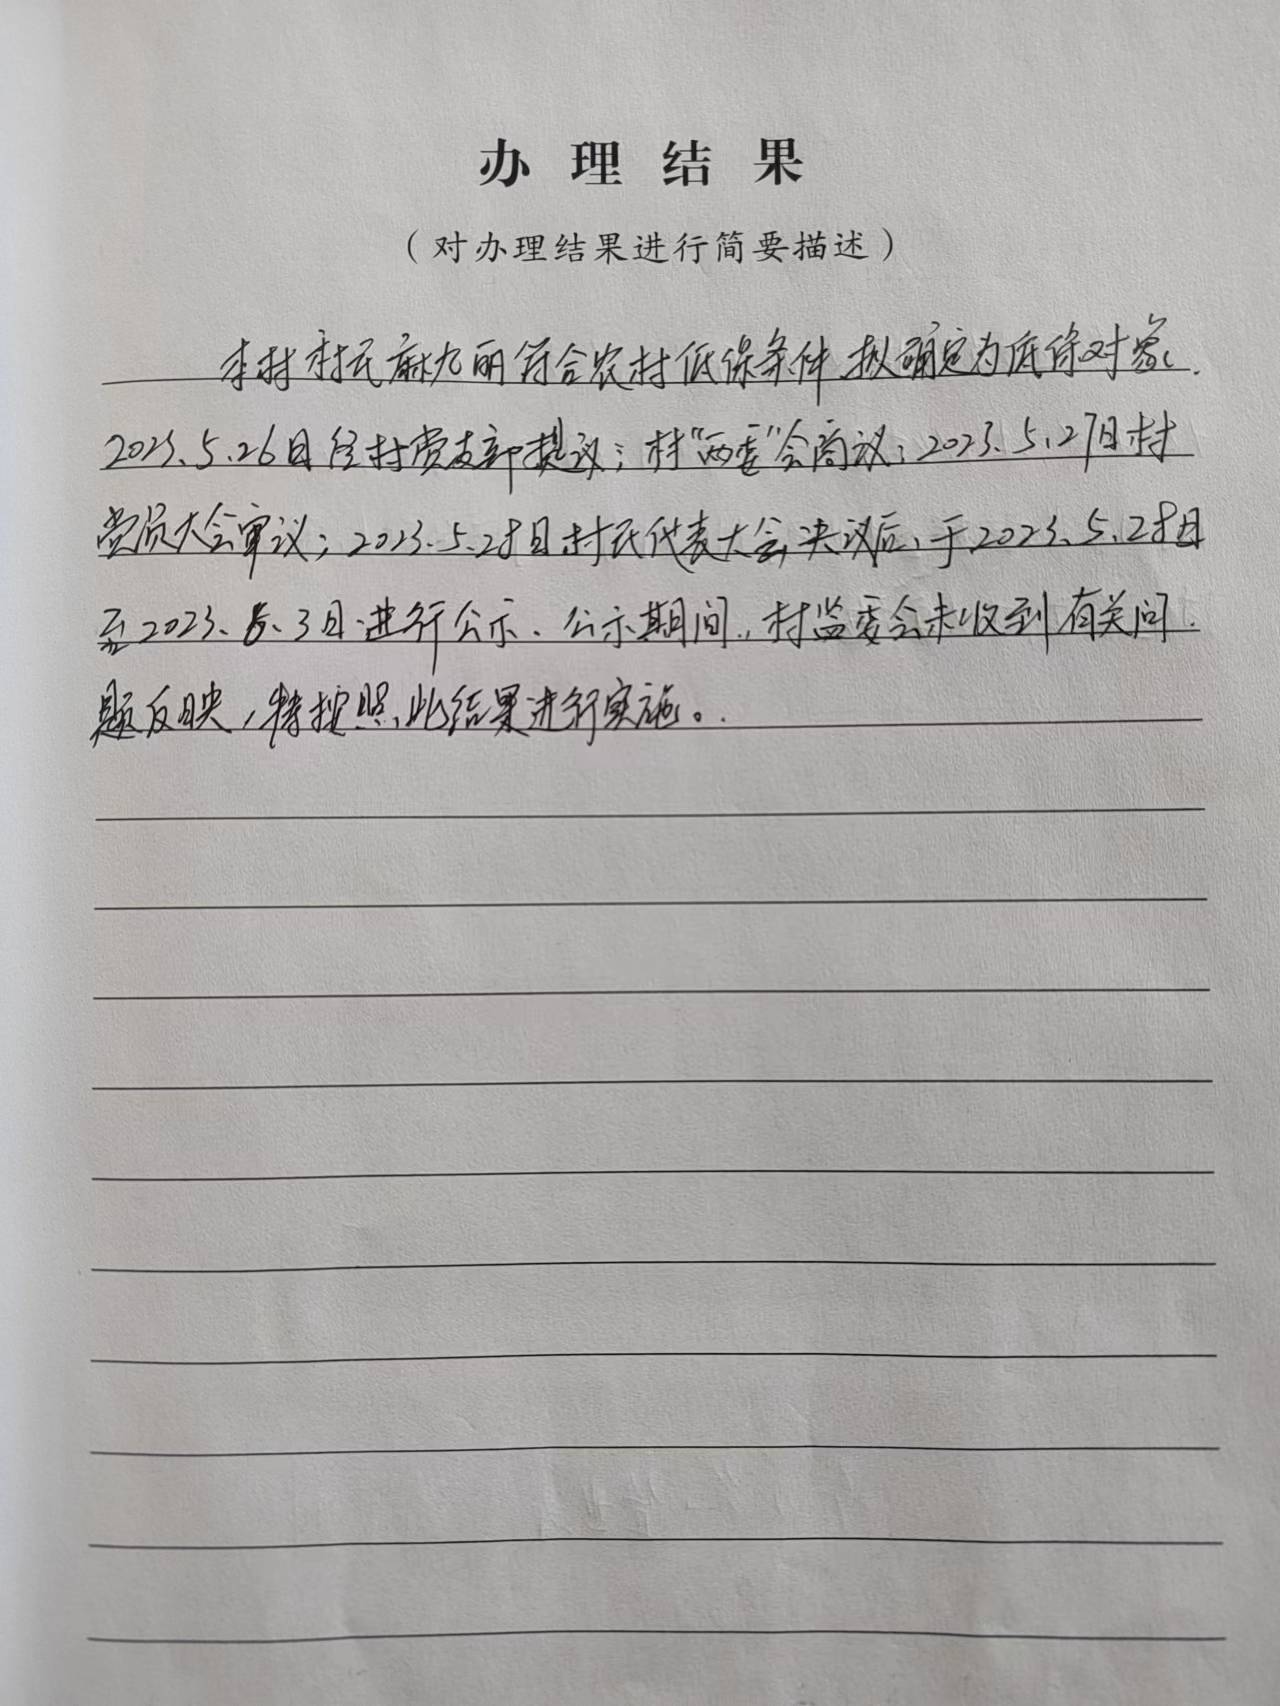 办理结果
（对办理结果进行简要描述）
本村村民麻九丽符合农村低保条件，拟确定为低保对象。
2023.5.26日经村党支部提议；村“两委”会商议；2023.5.27日村
党员大会审议；2023.5.28日村民代表大会决议后，于2023.5.28日
至2023.6.3日进行公示、公示期间，村监委会未收到有关问
题反映，特按照此结果进行实施。